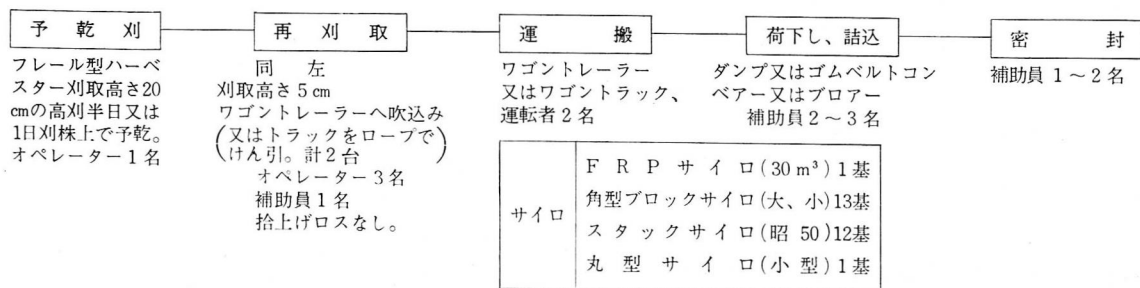 予乾刈
フレール型ハーベ
スター刈取高さ20
cmの高刈半日又は
1日刈株上で予乾。
オペレーター1名
再刈取
同左
刈取高さ5cm
ワゴントレーラーへ吹込み
(又はトラックをロープで
けん引。計2台)
オペレーター3名
補助員1名
拾上げロスなし。
運搬
ワゴントレーラー
又はワゴントラック、
運転者2名
荷下し、詰込
ダンプ又はゴムベルトコン
ベアー又はブロアー
補助員2~3名
密封
補助員1~2名
サイロ
FRPサイロ(30m³)1基
角型ブロックサイロ(大、小)13基
スタックサイロ(昭50)12基
丸型サイロ(小型)1基